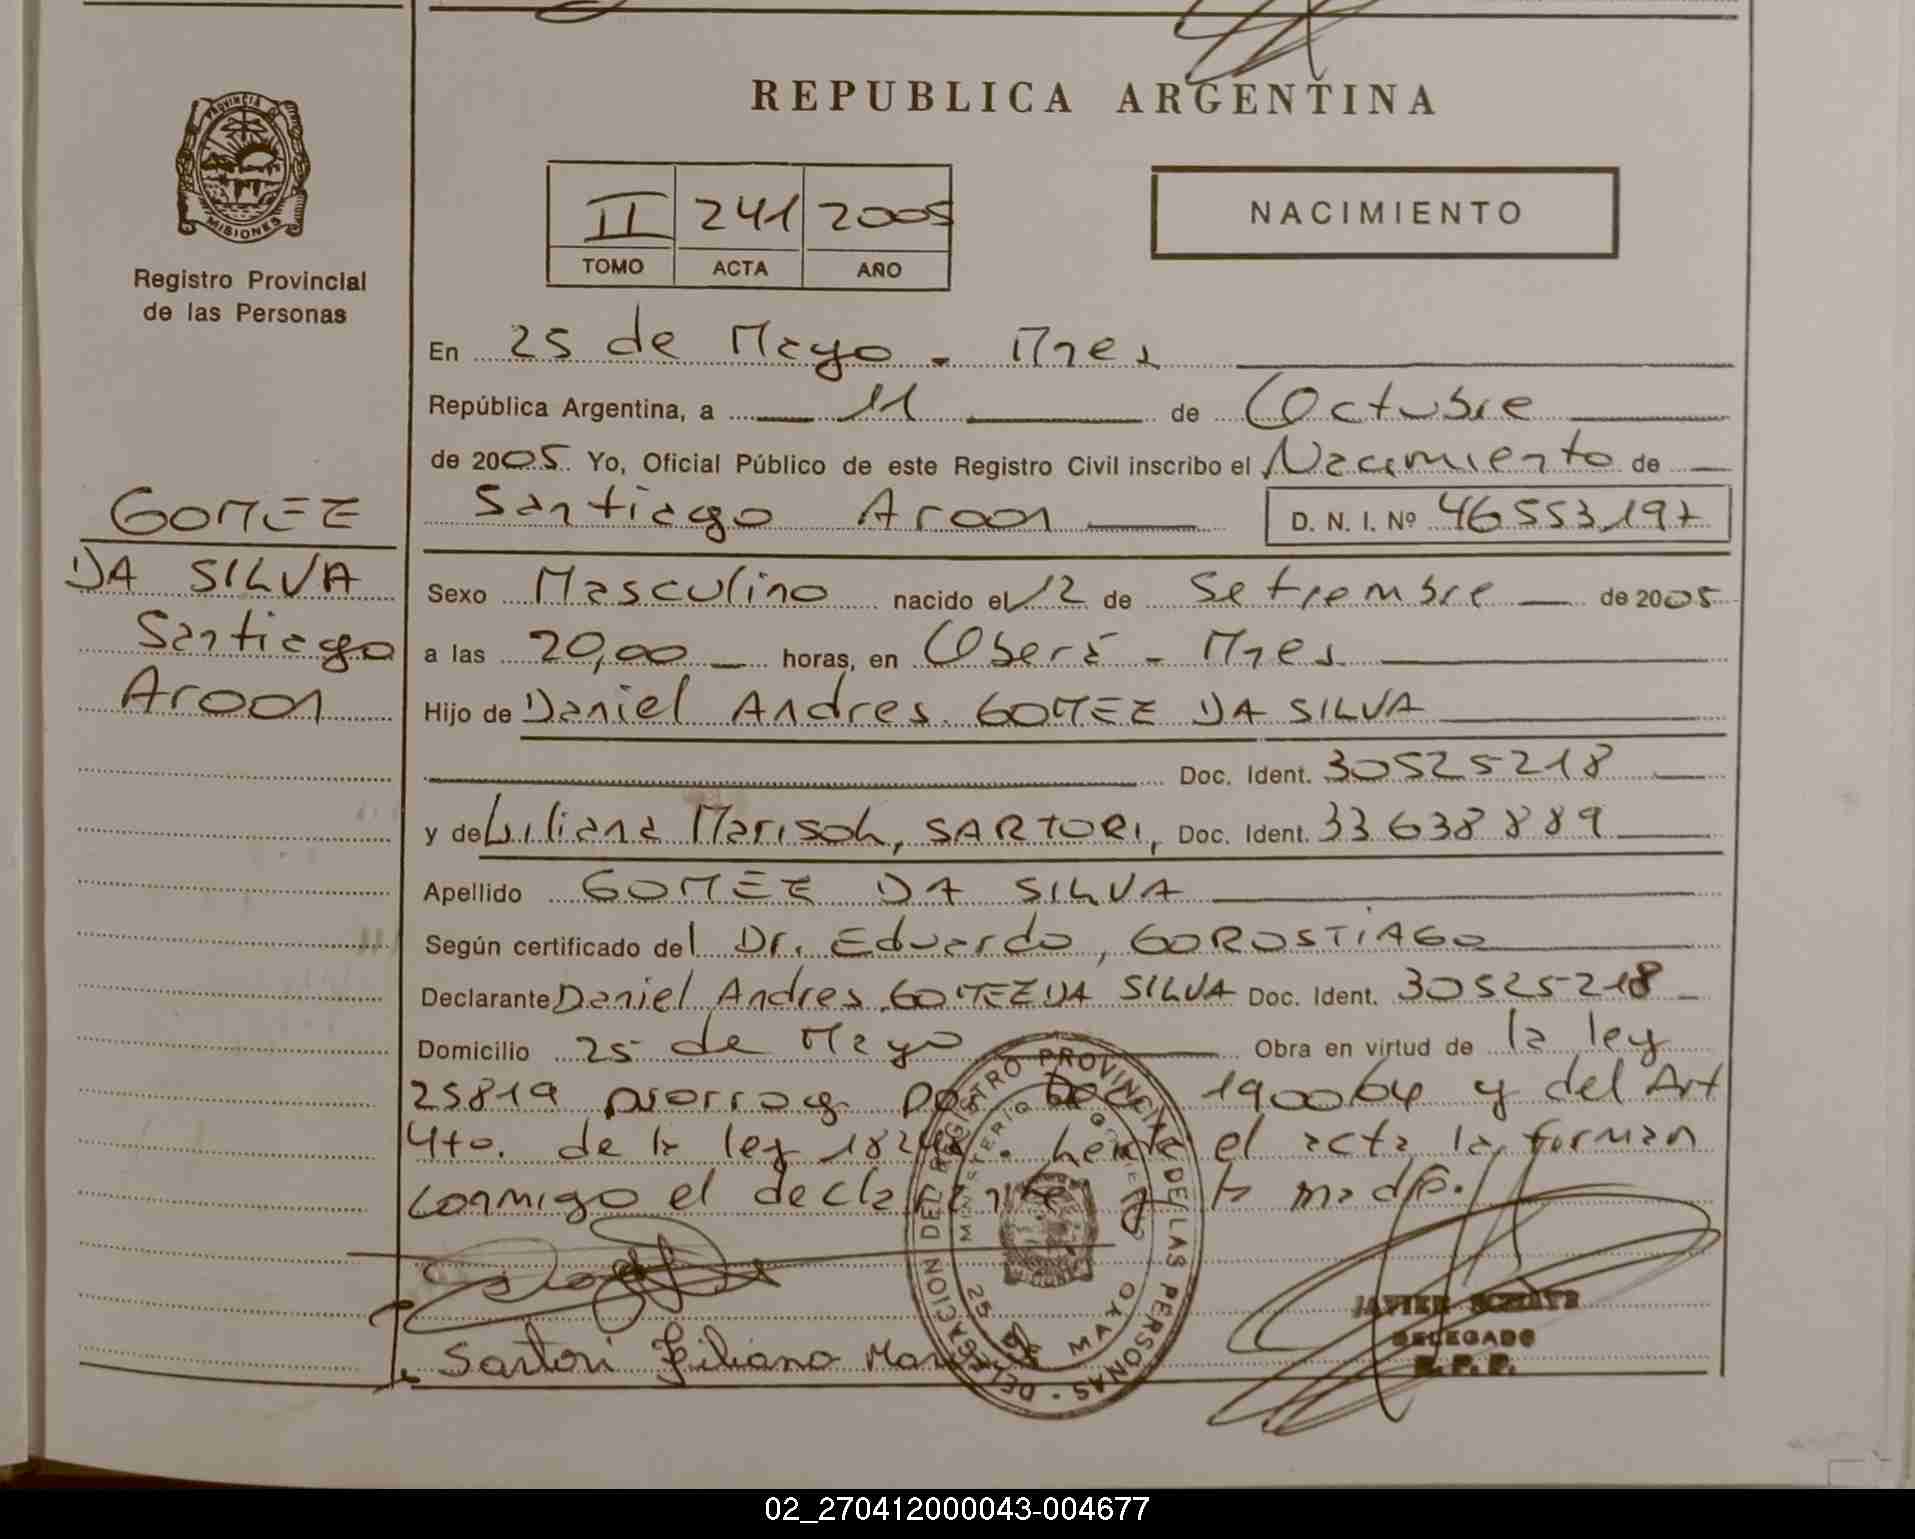 REPUBLICA ARGENTINA
PROVINCIA
MISIONES
Registro Provincial
de las Personas
II 241 2005
TOMO ACTA AÑO
NACIMIENTO
En 25 de Mayo - Mnes
República Argentina, a 11 de Octubre
de 2005 Yo, Oficial Público de este Registro Civil inscribo el Nacimiento de
Santiago Aroon D. N. I. Nº 46553197
GOMEZ
DA SILVA
Santiago
Aroon
Sexo Masculino nacido el 12 de Setiembre de 2005
a las 20,00 horas, en Oberá - Mnes
Hijo de Daniel Andres GOMEZ DA SILVA
Doc. Ident. 30525218
y de Liliana Marisol, SARTORI, Doc. Ident. 33638889
Apellido GOMEZ DA SILVA
Según certificado del Dr. Eduardo, GOROSTIAGO
Declarante Daniel Andres GOMEZ DA SILVA Doc. Ident. 30525218
Domicilio 25 de Mayo Obra en virtud de la ley
25819 prorrog por 1900/04 y del Art
4to. de la ley el acta la forman
conmigo el declarante y la madre.
Sartori Liliana
DELEGACION DEL REGISTRO PROVINCIAL DE LAS PERSONAS
MINISTERIO DE GOBIERNO
25 DE MAYO
JAVIER
DELEGADO
R. P. P.
02_270412000043-004677